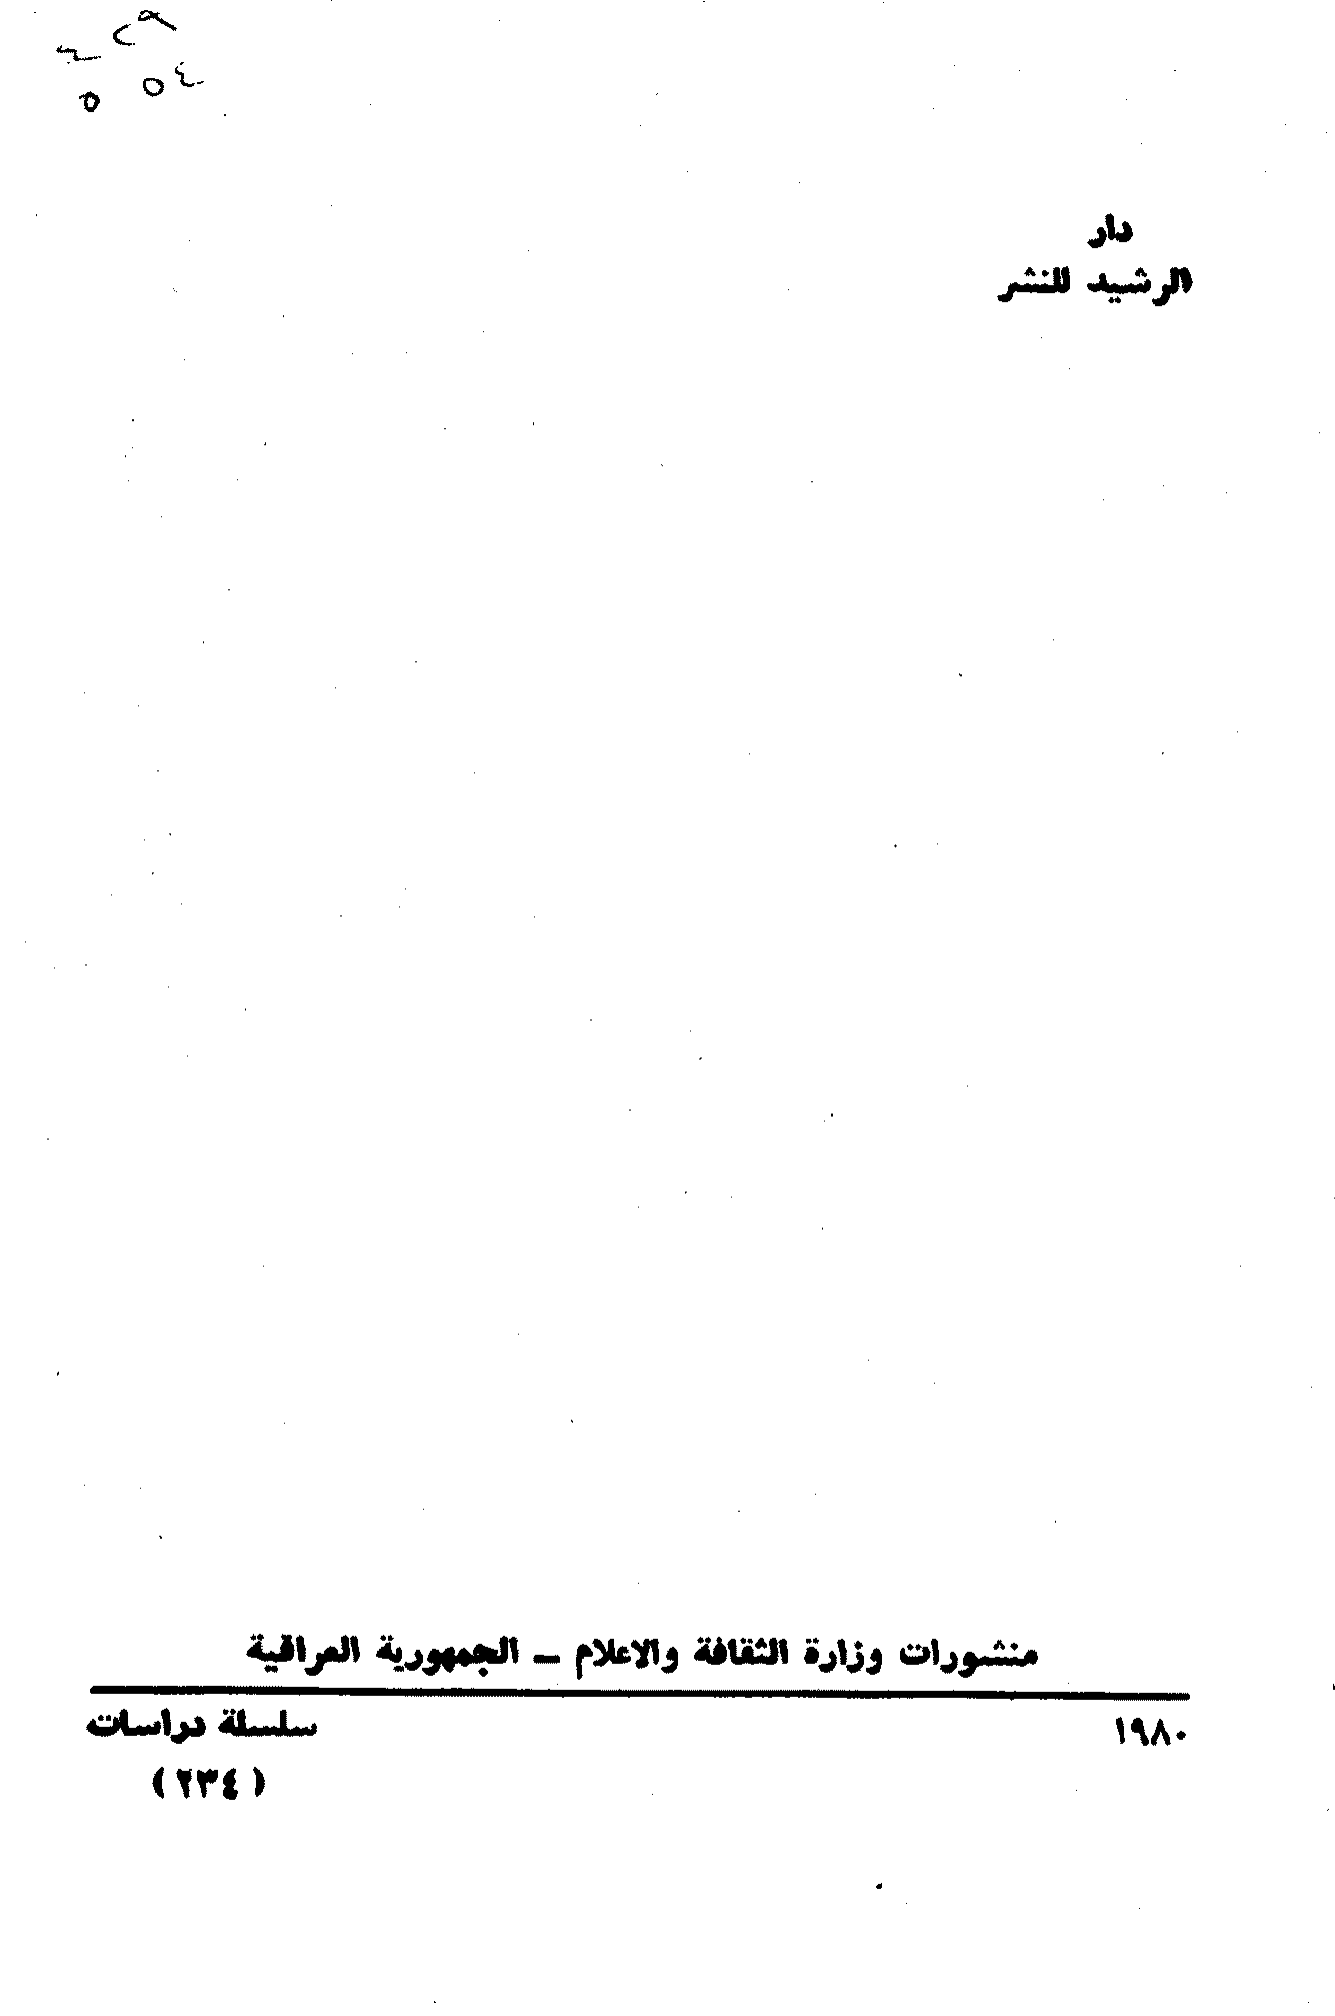 دار
الرشيد للنشر
منشورات وزارة الثقافة والاعلام ــ الجمهورية العراقية
١٩٨٠
سلسلة دراسات
( ٢٣٤ )